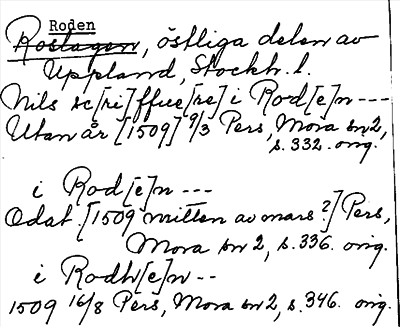 Roden
Roslagen, östliga delen av
Uppland, Stockh. l.
Nils sc[ri]ffue[re] i Rod[e]n ---
Utan år [1509] 9/3 Pers, Mora nr 2,
s. 332. orig.
i Rod[e]n ---
Odat. [1509 mitten av mars?] Pers,
Mora nr 2, s. 336. orig.
i Rodh[e]n --
1509 16/8 Pers, Mora nr 2, s. 346. orig.